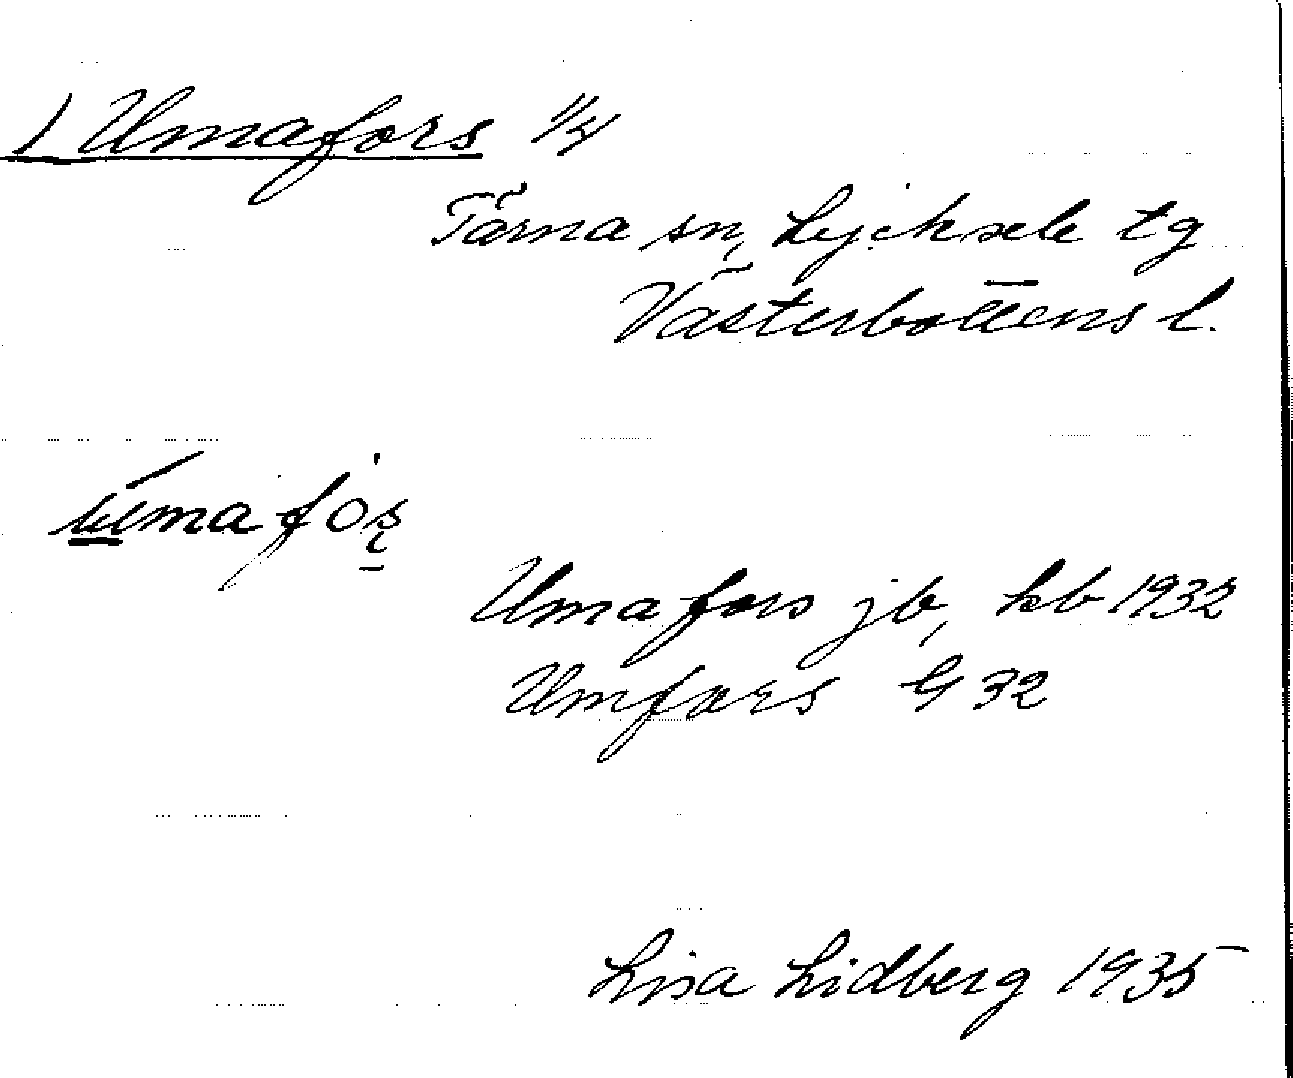 1 Umafors 1/4
Tärna sn, Lycksele tg
Västerbottens l.
umafọṣ
Umafors jb, kb 1932
Umfors G 32
Lisa Lidberg 1935